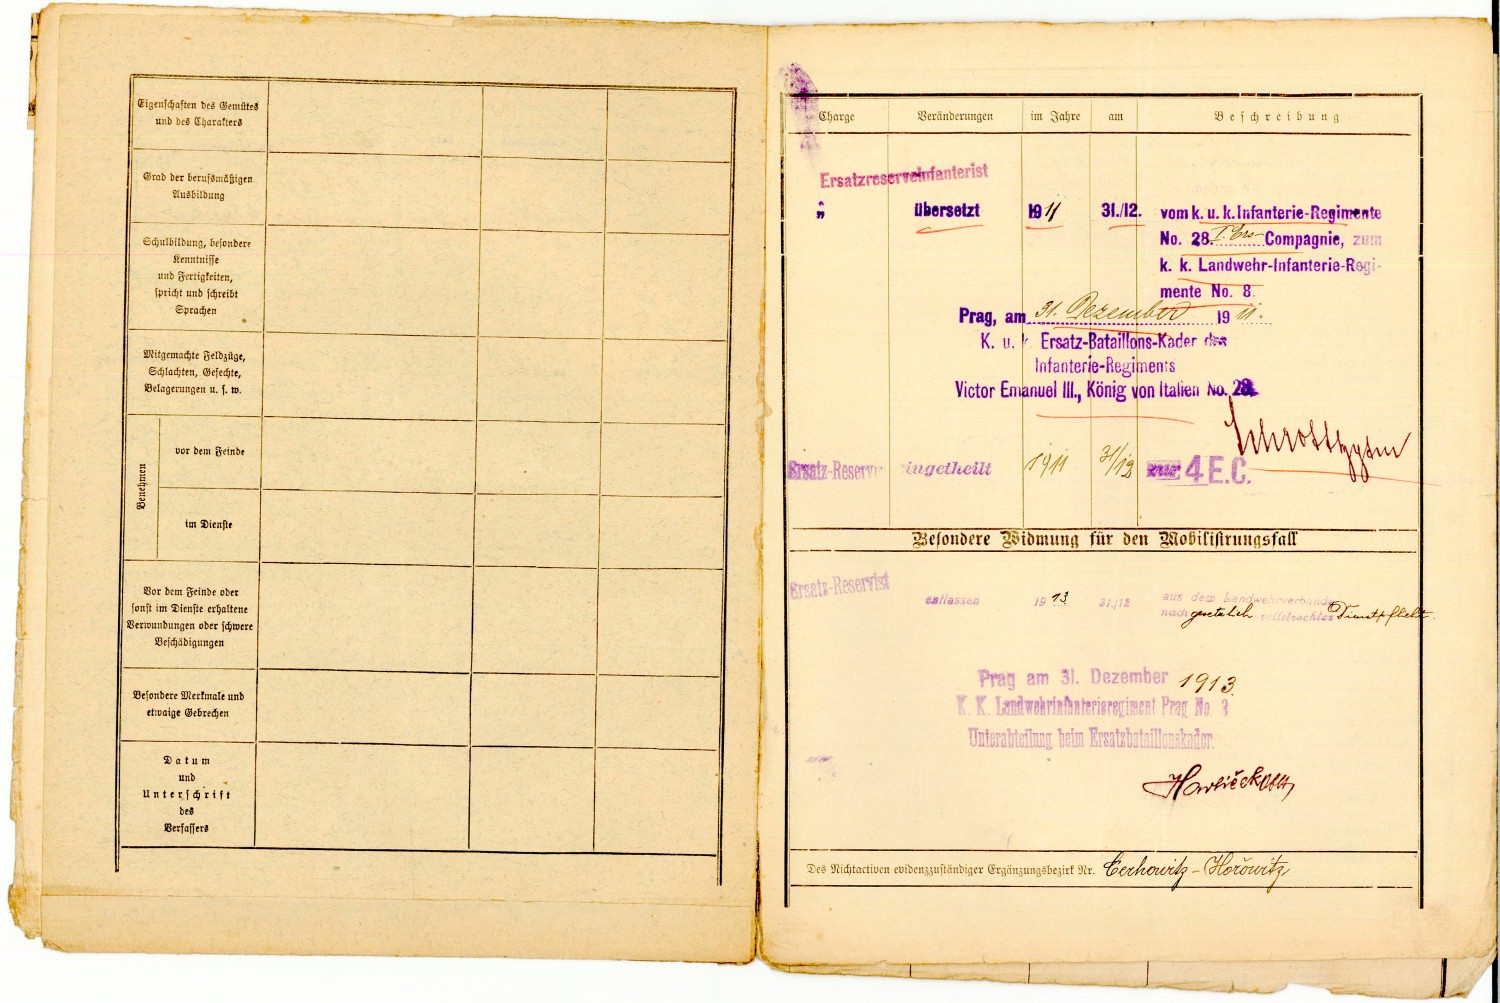 Eigenschaften des Gemütes
und des Charakters
Grad der berufsmäßigen
Ausbildung
Schulbildung, besondere
Kenntnisse
und Fertigkeiten,
spricht und schreibt
Sprachen
Mitgemachte Feldzüge,
Schlachten, Gefechte,
Belagerungen u. s. w.
Benehmen
vor dem Feinde
im Dienste
Vor dem Feinde oder
sonst im Dienste erhaltene
Verwundungen oder schwere
Beschädigungen
Besondere Merkmale und
etwaige Gebrechen
Datum
und
Unterschrift
des
Verfassers
Charge Veränderungen im Jahre am Beschreibung
Ersatzreserveinfanterist
" übersetzt 1911 31./12. vom k. u. k. Infanterie-Regimente
No. 28. Compagnie, zum
k. k. Landwehr-Infanterie-Regi-
mente No. 8.
Prag, am 31. Dezember 1911.
K. u. k. Ersatz-Bataillons-Kader des
Infanterie-Regiments
Victor Emanuel III., König von Italien No. 28.
Ersatz-Reservist eingetheilt 1911 31/12 zur 4 E.C.
Besondere Widmung für den Mobilisirungsfall
Ersatz-Reservist entlassen 1913 31./12 aus dem Landwehrverbande
nach gesetzlich vollstreckter Dienstpflicht.
Prag am 31. Dezember 1913.
K. K. Landwehrinfanterieregiment Prag No. 8
Unterabteilung beim Ersatzbataillonskader.
Des Nichtactiven evidenzzuständiger Ergänzungsbezirk Nr. Cerhowitz - Hořowitz